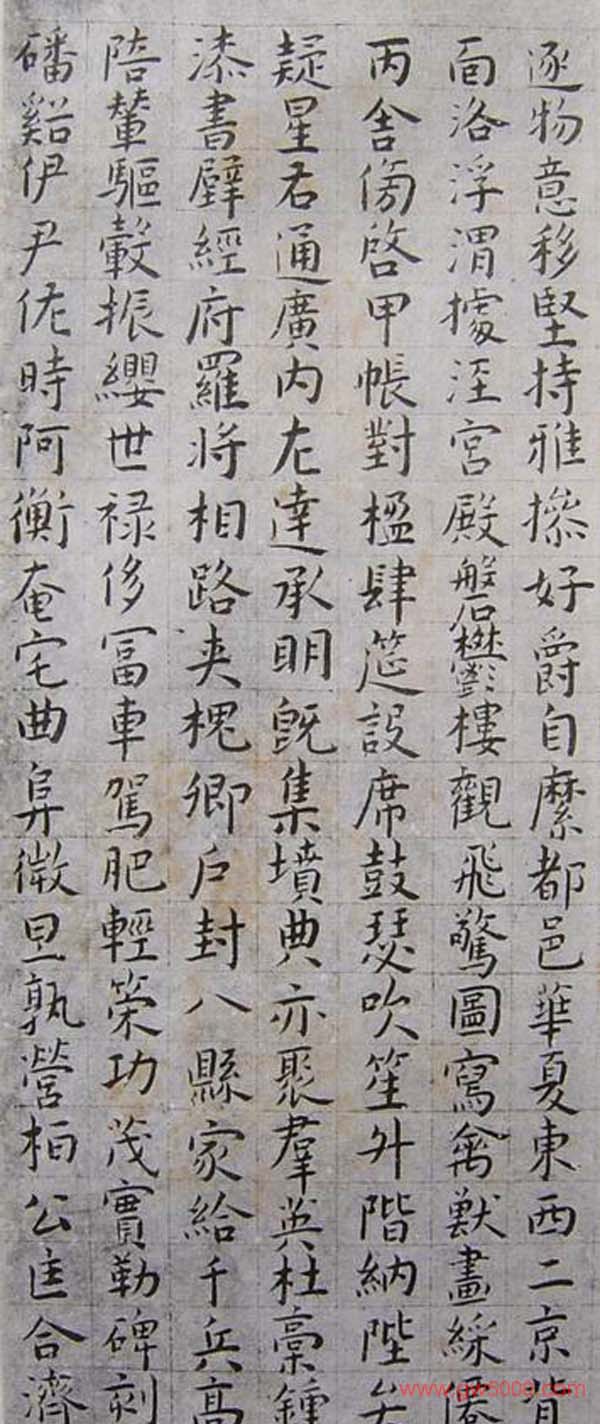 逐物意移堅持雅操好爵自縻都邑華夏東西二京背
面洛浮渭據涇宮殿盤鬱樓觀飛驚圖寫禽獸畫綵僊
丙舍傍啓甲帳對楹肆筵設席鼓瑟吹笙升階納陛弁
疑星右通廣内左達承明既集墳典亦聚羣英杜稾鍾
漆書壁經府羅將相路夾槐卿戶封八縣家給千兵高
陪輦驅轂振纓世禄侈冨車駕肥輕策功茂實勒碑刻
磻谿伊尹佐時阿衡奄宅曲阜微旦孰營桓公匡合濟